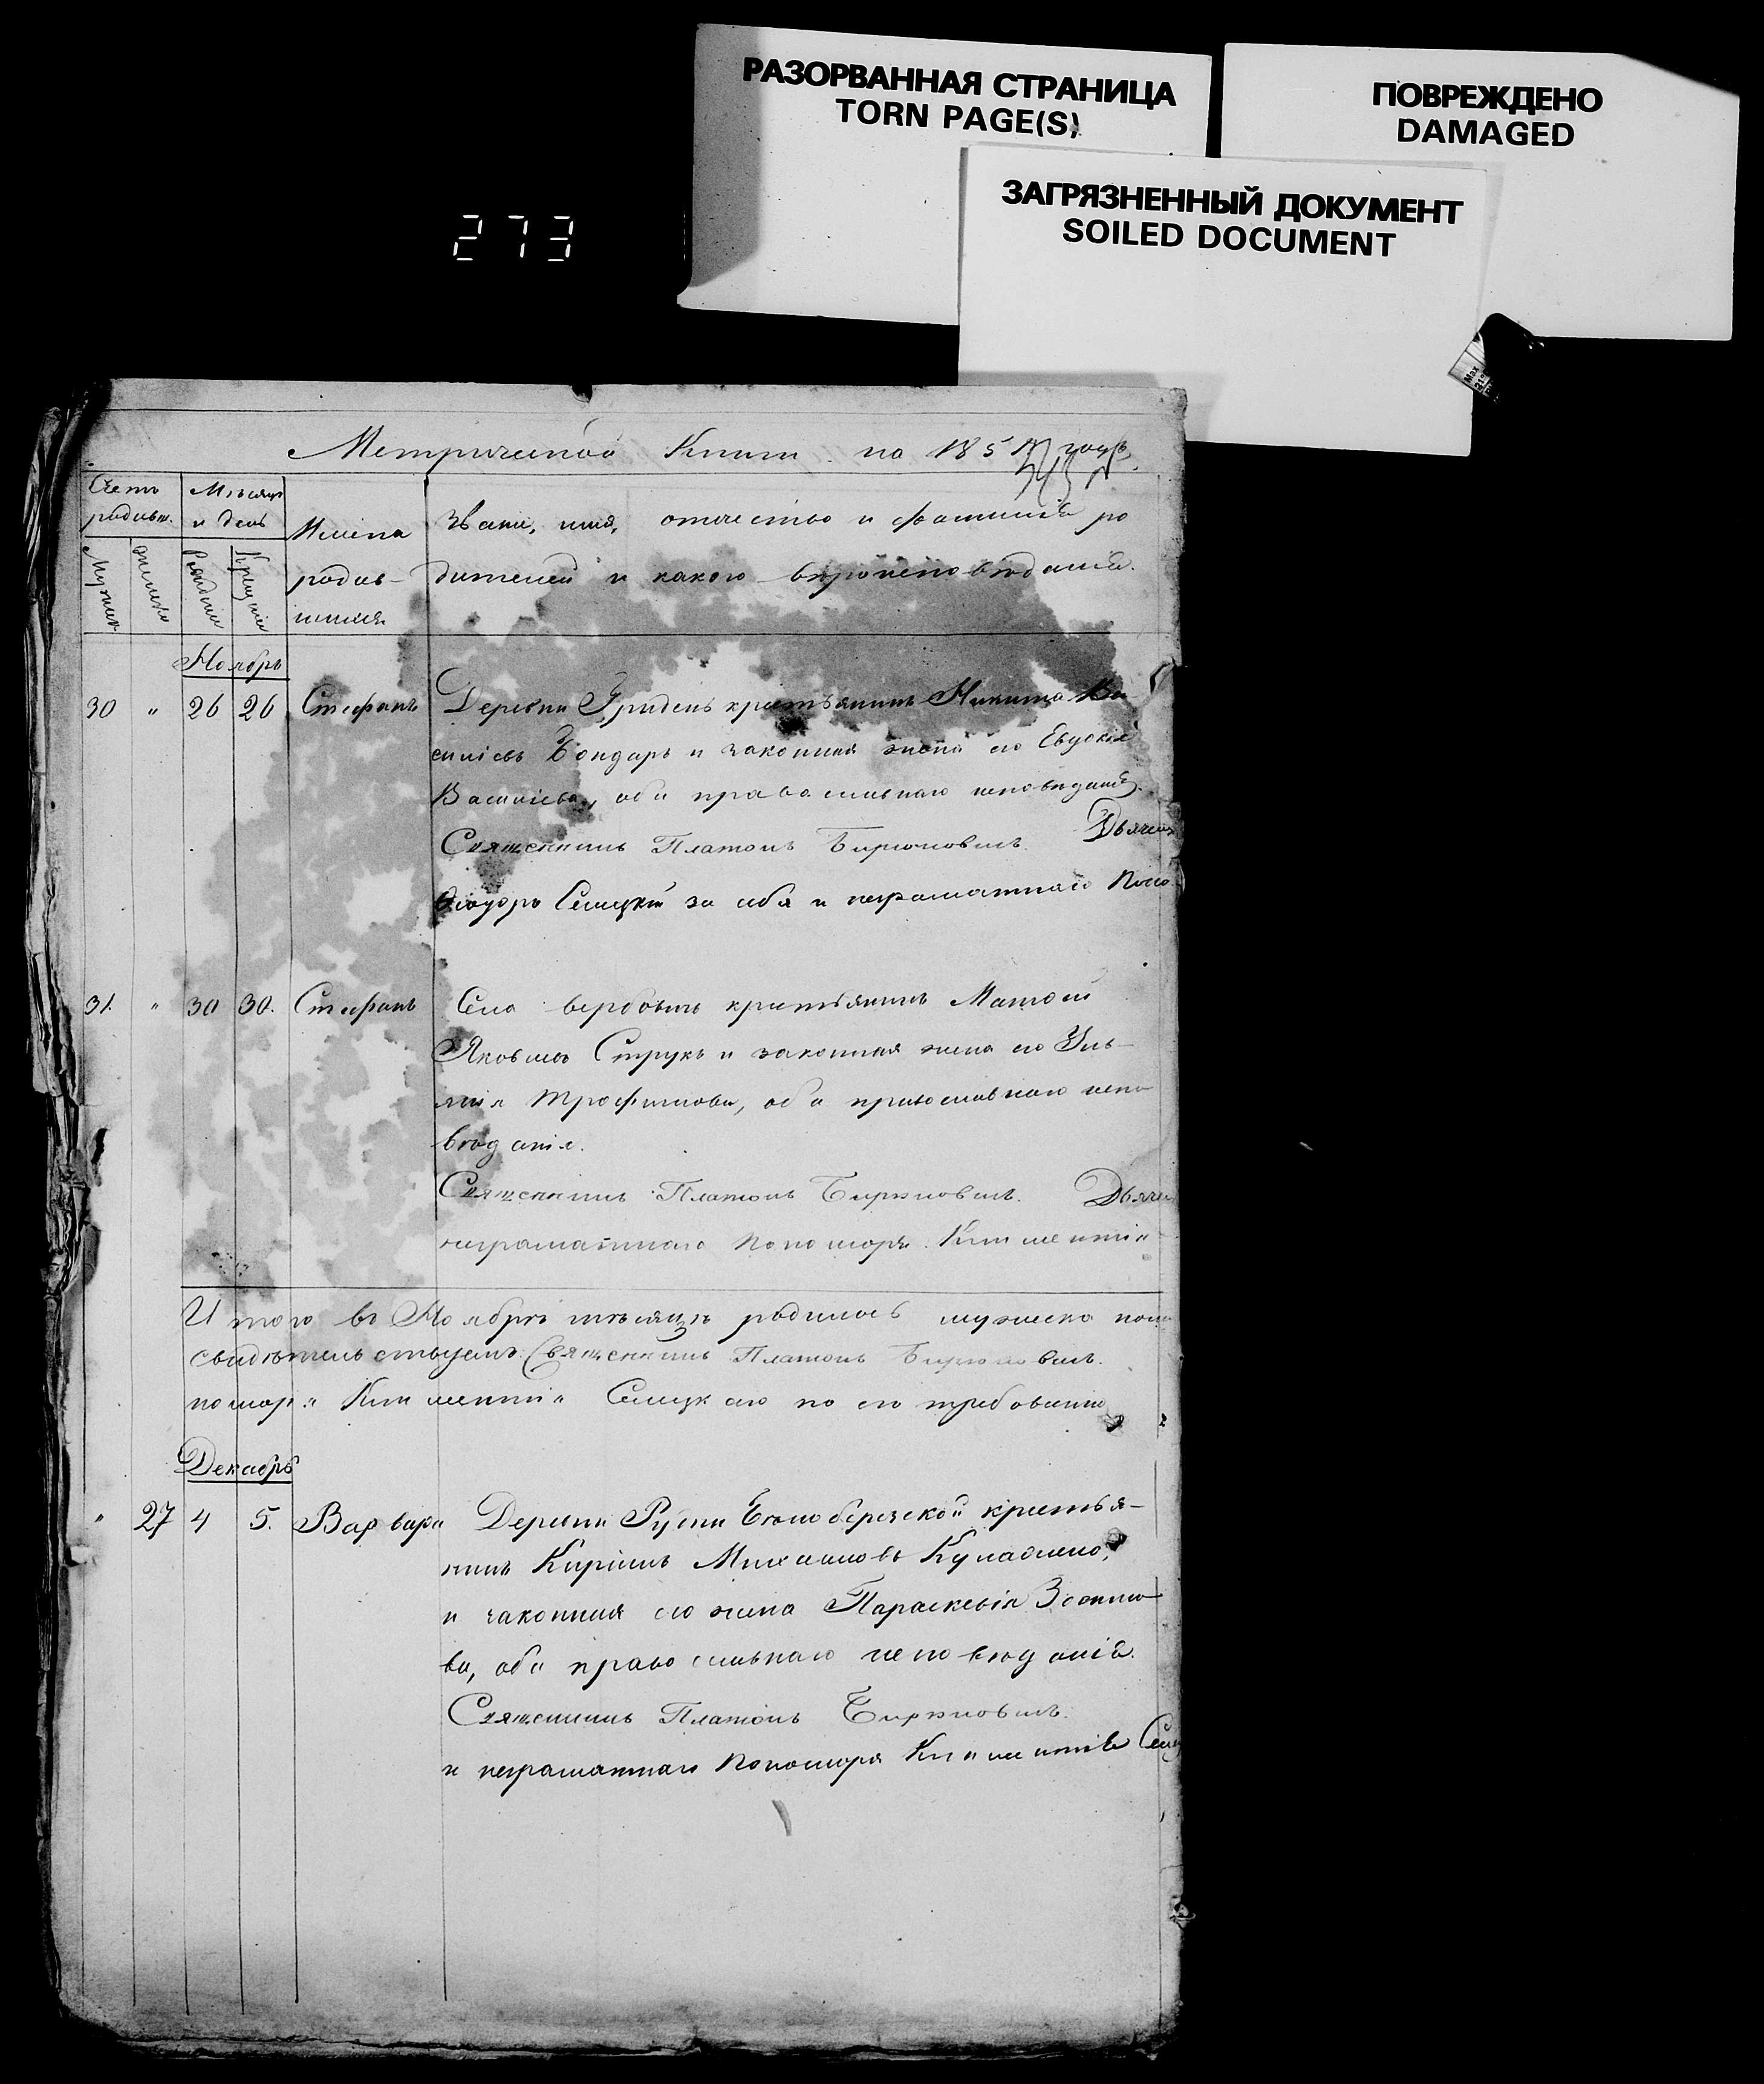 РАЗОРВАННАЯ СТРАНИЦА
TORN PAGE(S)
ПОВРЕЖДЕНО
DAMAGED
ЗАГРЯЗНЕННЫЙ ДОКУМЕНТ
SOILED DOCUMENT
273
Метрической Книги на 185 годъ
Счетъ родивш.
Мѣсяцъ и день
Имена родив-
шихся
Званіе, имя, отчество и фамилія ро
дителей и какого вѣроисповѣданія.
Мужеск
женска
Рожденія
Крещенія
Ноябрь
30 " 26 26 Стефанъ Деревни Гридень крестьянинъ Никита Ва-
силіевъ Бондарь и законная жена его Евдокія
Василіева, оба православнаго исповѣданія.
Священникъ Платонъ Бирюковичъ. Дьячекъ
Ѳеодоръ Селецкій за себя и неграматнаго Поно
31. " 30 30. Стефанъ Села Вербовичь крестьянинъ Матѳей
Яковлевъ Струкъ и законная жена его Улі-
янія Трофимова, оба православнаго испо
вѣданія.
Священникъ Платонъ Бирюковичъ. Дьячекъ
неграматнаго Пономаря Климентія
Итого въ Ноябрѣ мѣсяцѣ родилось мужеска пола
свидѣтельствуемъ: Священникъ Платонъ Бирюковичъ.
номаря Климентія Селецкаго по его требованію
Декабрь
" 27 4 5. Варвара Деревни Рудни Бѣлоберезской крестья-
нинъ Кирилъ Михаиловъ
и законная его жена Параскевія
ва, оба православнаго исповѣданія.
Священникъ Платонъ Бирюковичъ.
и неграматнаго Пономаря Климентія